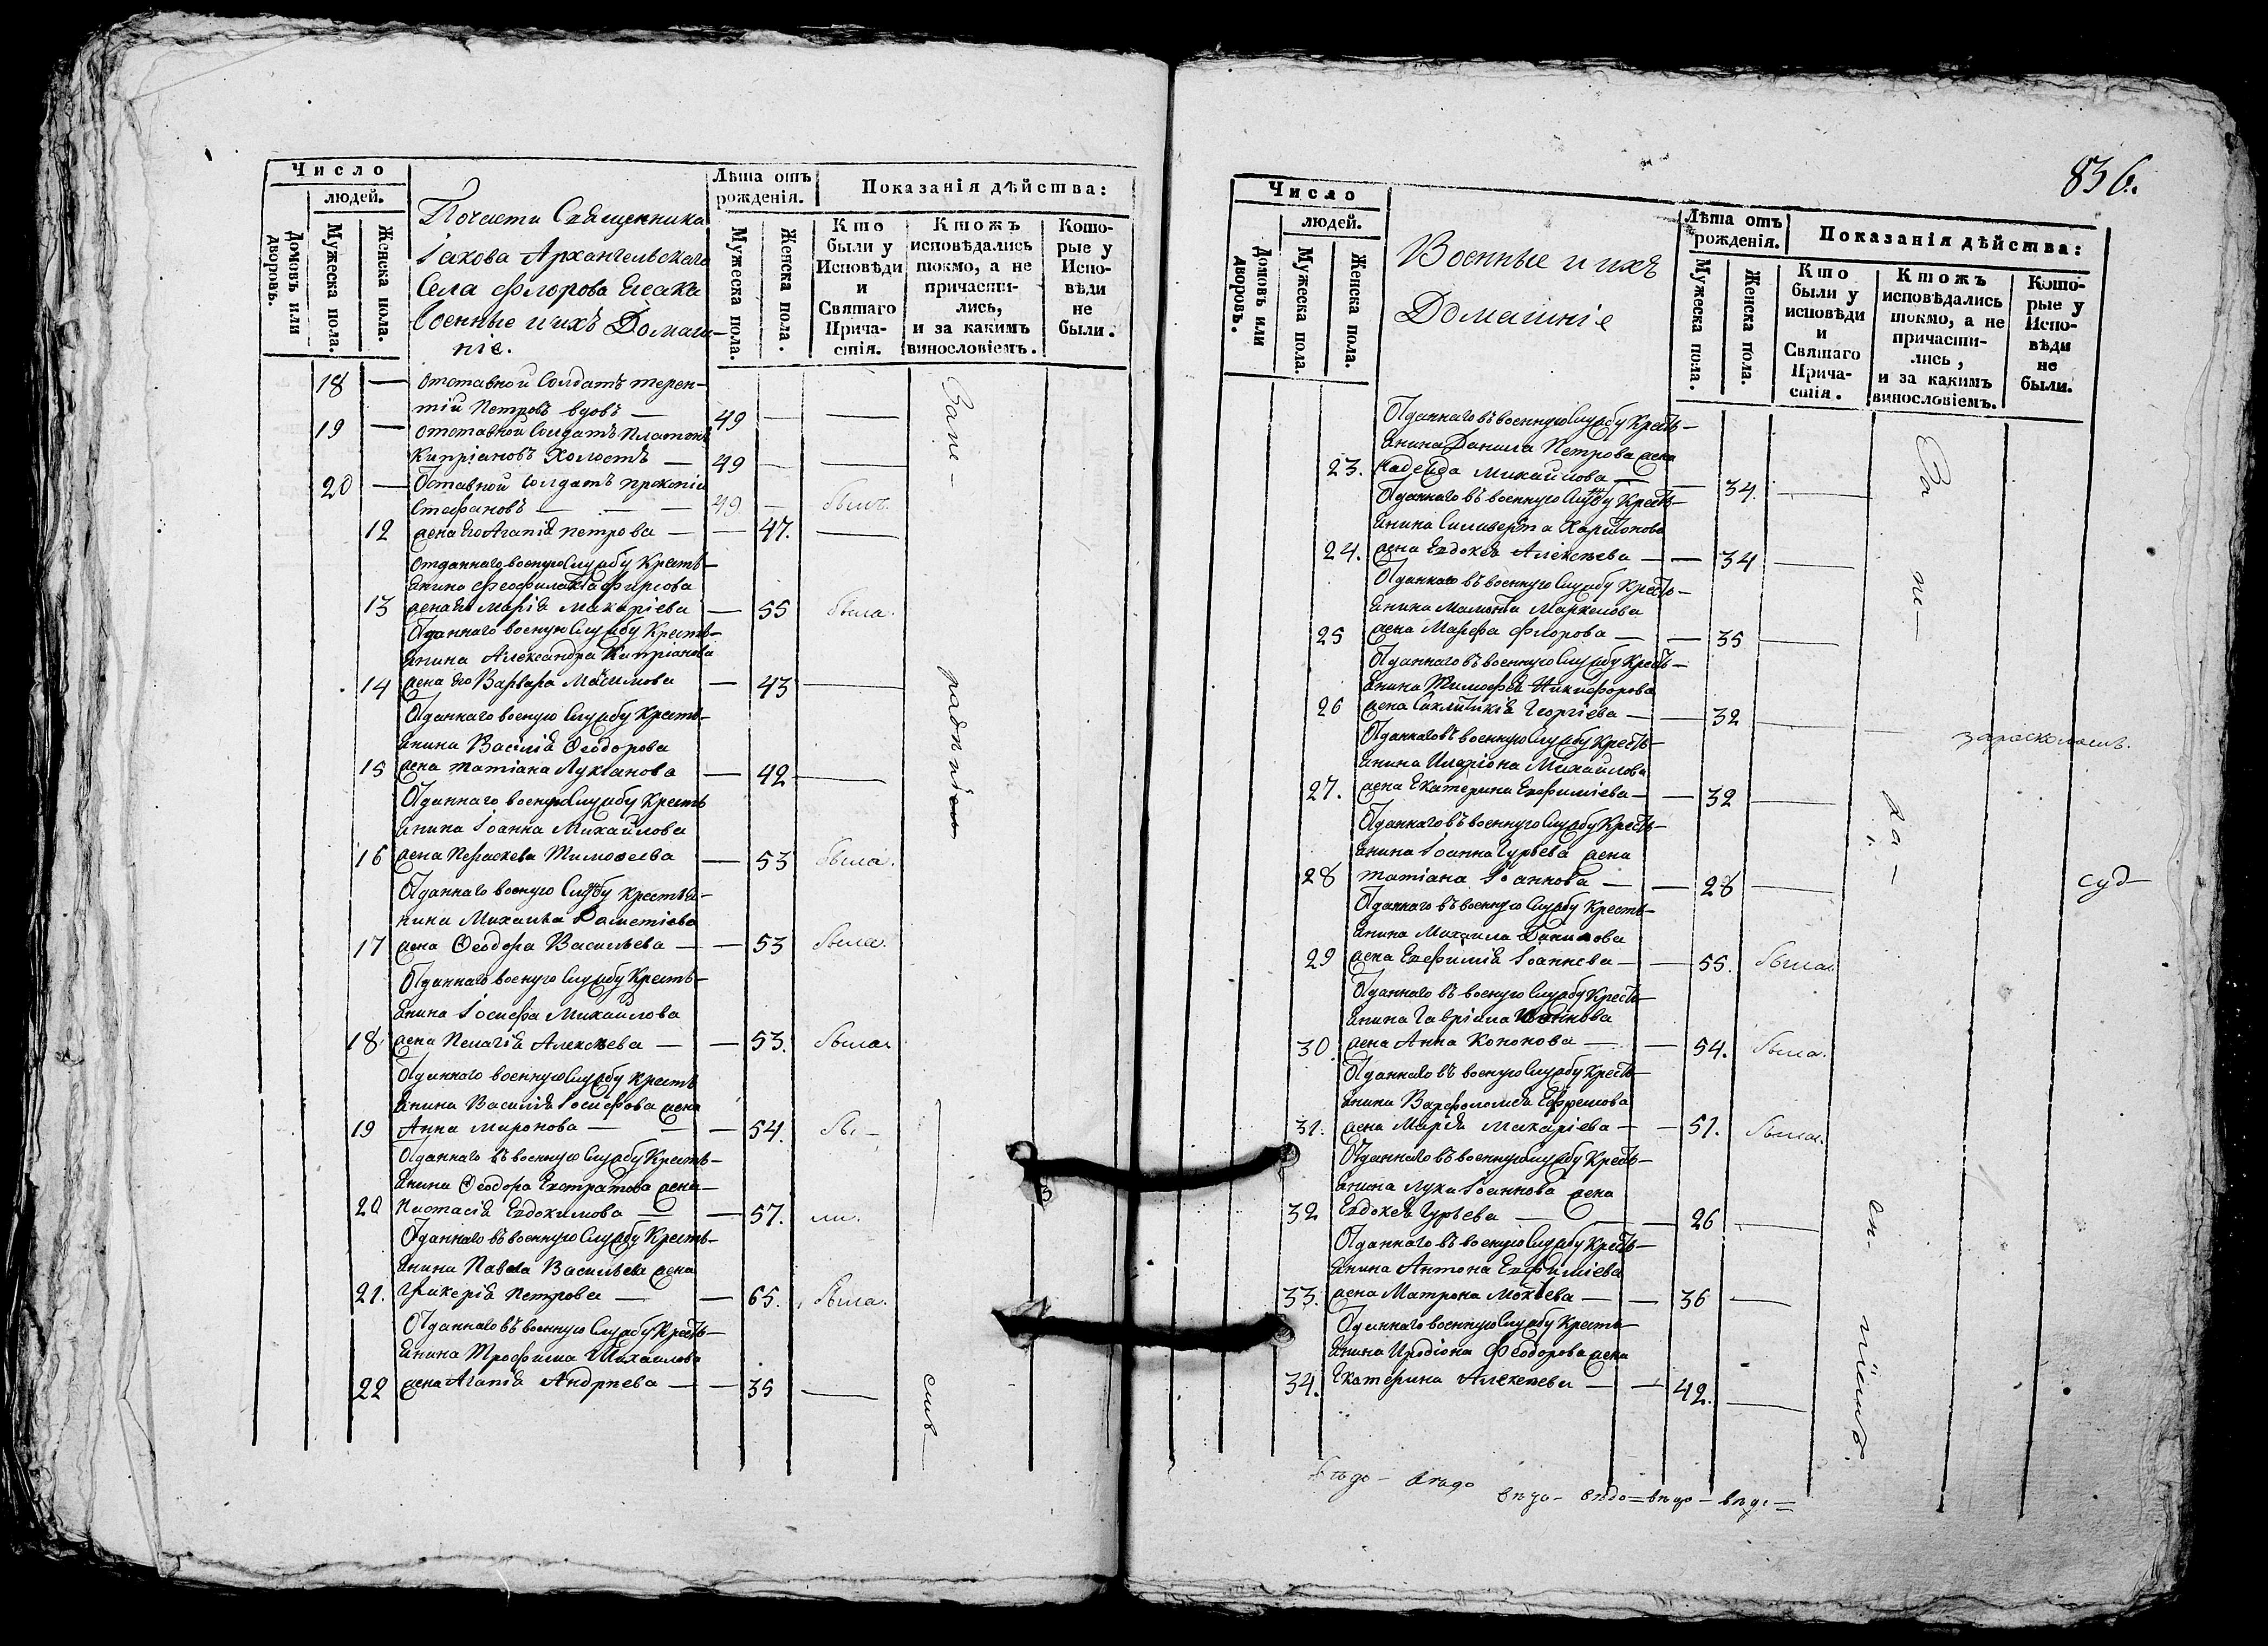 Число
людей.
Домовъ или дворовъ.
Мужеска пола.
Женска пола.
Почасти Священника
Іакова Архангельскаго
Села Флорова
Военные и ихъ Домаш-
ніе.
Лѣта отъ рожденія.
Мужеска пола.
Женска пола.
Показанія дѣйства:
Кто были у Исповѣди и Святаго Причастія.
Ктожъ исповѣдались токмо, а не причастились, и за какимъ винословіемъ.
Которые у Исповѣди не были.
18 — отставной Солдатъ терен-
тій Петровъ вдовъ — 49 — —
19 — отставной Солдатъ Платонъ
Кипріановъ Холостъ — 49 — —
20 — Отставной Солдатъ прокопій
Стефановъ — — — 49 — былъ.
12 жена его Агапія петрова — — 47. —
отданнаго военую Службу Кресть-
янина Феофилакта Фирсова
13 жена его Марія Макаріева — 55 была.
Отданнаго военую Службу Кресть-
янина Александра Кипріанова
14 жена его Варвара Маѯимова — 43 —
Отданнаго военую Службу Кресть-
янина Василія Ѳеодорова
15 жена татіана Лукіанова — 42 —
Отданнаго военую Службу Кресть
янина Іоанна Михайлова
16 жена Параскева Тимоѳеева — 53 была.
Отданнаго военую Службу крестья-
нина Михаила Дометіева
17 жена Ѳеодора Васильева — — 53 была.
Отданнаго военую Службу Кресть-
янина Іосифа Михайлова
18 жена Пелагія Алексѣева — — 53. была
Отданнаго военную Службу кресть
янина Василія Іосифова жена
19 Анна Миронова — — — 54. бы-
Отданнаго въ военную Службу Кресть-
янина Ѳеодора Евстратова жена-
20 Настасія Евдокимова — — 57. ли.
Отданнаго въ военную Службу Кресть-
янина Павла Васильева жена
21. Гликерія петрова — — 65. была.
Отданнаго въ военную Службу Кресть-
янина Трофима Михаилова
22 жена Агапія Андрѣева — — 35 —
Зане-
радѣніемъ
836.
Число
людей.
Домовъ или дворовъ.
Мужеска пола.
Женска пола.
Военные и ихъ
Домашніе
Лѣта отъ рожденія.
Мужеска пола.
Женска пола.
Показанія дѣйства:
Кто были у исповѣди и Святаго Причастія.
Ктожъ исповѣдались токмо, а не причастились, и за какимъ винословіемъ.
Которые у Исповѣди не были.
Отданнаго въ военную Службу Кресть-
янина Данила Петрова жена
23. Надежда Михайлова — — 34. —
Отданнаго въ военную Службу Кресть-
янина Силиверста Харитонова
24. жена Евдокея Алексѣева — — 34 —
Отданнаго въ военную Службу Кресть-
янина Мамонта Маркелова
25 жена Марфа Флорова — — 35 —
Отданнаго въ военную Службу Кресть-
янина Тимофея Никифорова
26 жена Секлитикія Георгіева — — 32 —
Отданнаго въ военную Службу Кресть-
янина Иларіона Михаилова
27. жена Екатерина Евфиміева — — 32 —
Отданнаго въ военную Службу Кресть-
янина Іоанна Гурьева жена
28 татіана Іоаннова — — 28 —
Отданнаго въ военную Службу Кресть-
янина Михаила Данилова
29 жена Евфимія Іоаннева — — 55. была
Отданнаго въ военую Службу Кресть-
янина Гавріила
30. жена Анна Кононова — — 54. была.
Отданнаго въ военую Службу Кресть-
янина Варфоломея Ефремова
31. жена Марія Макаріева — — 51. была.
Отданнаго въ военную Службу Кресть-
янина Луки Іоаннова жена
32 Евдокея Гурьева — — 26 —
Отданнаго въ военую Службу Кресть-
янина Антона Евфиміева
33. жена Матрона Мокіева — — 36 —
Отданнаго военную Службу Кресть-
янина Иродіона Ѳеодорова жена
34. Екатерина Алексѣева — — 42. —
зарасколомъ.